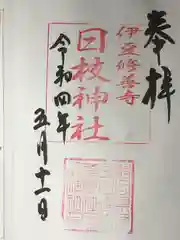 奉拝
伊豆修善寺
日枝神社
令和四年
五月十一日